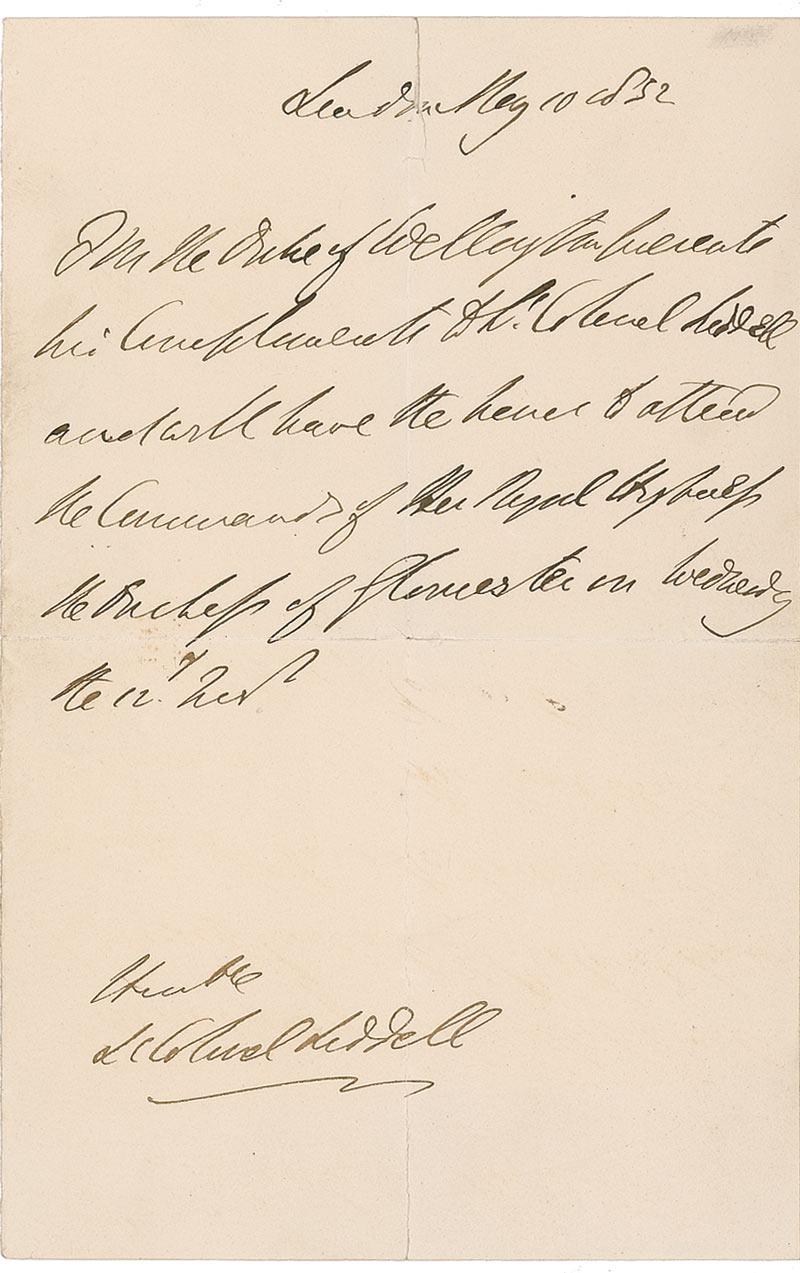 London May 10 1852
F M the Duke of Wellington presents
his Compliments to Lt. Colonel Liddell
and will have the honor to attend
the Commands of Her Royal Highness
the Duchess of Gloucester on Wednesday
the 12t Inst
Honble
Lt Colonel Liddell